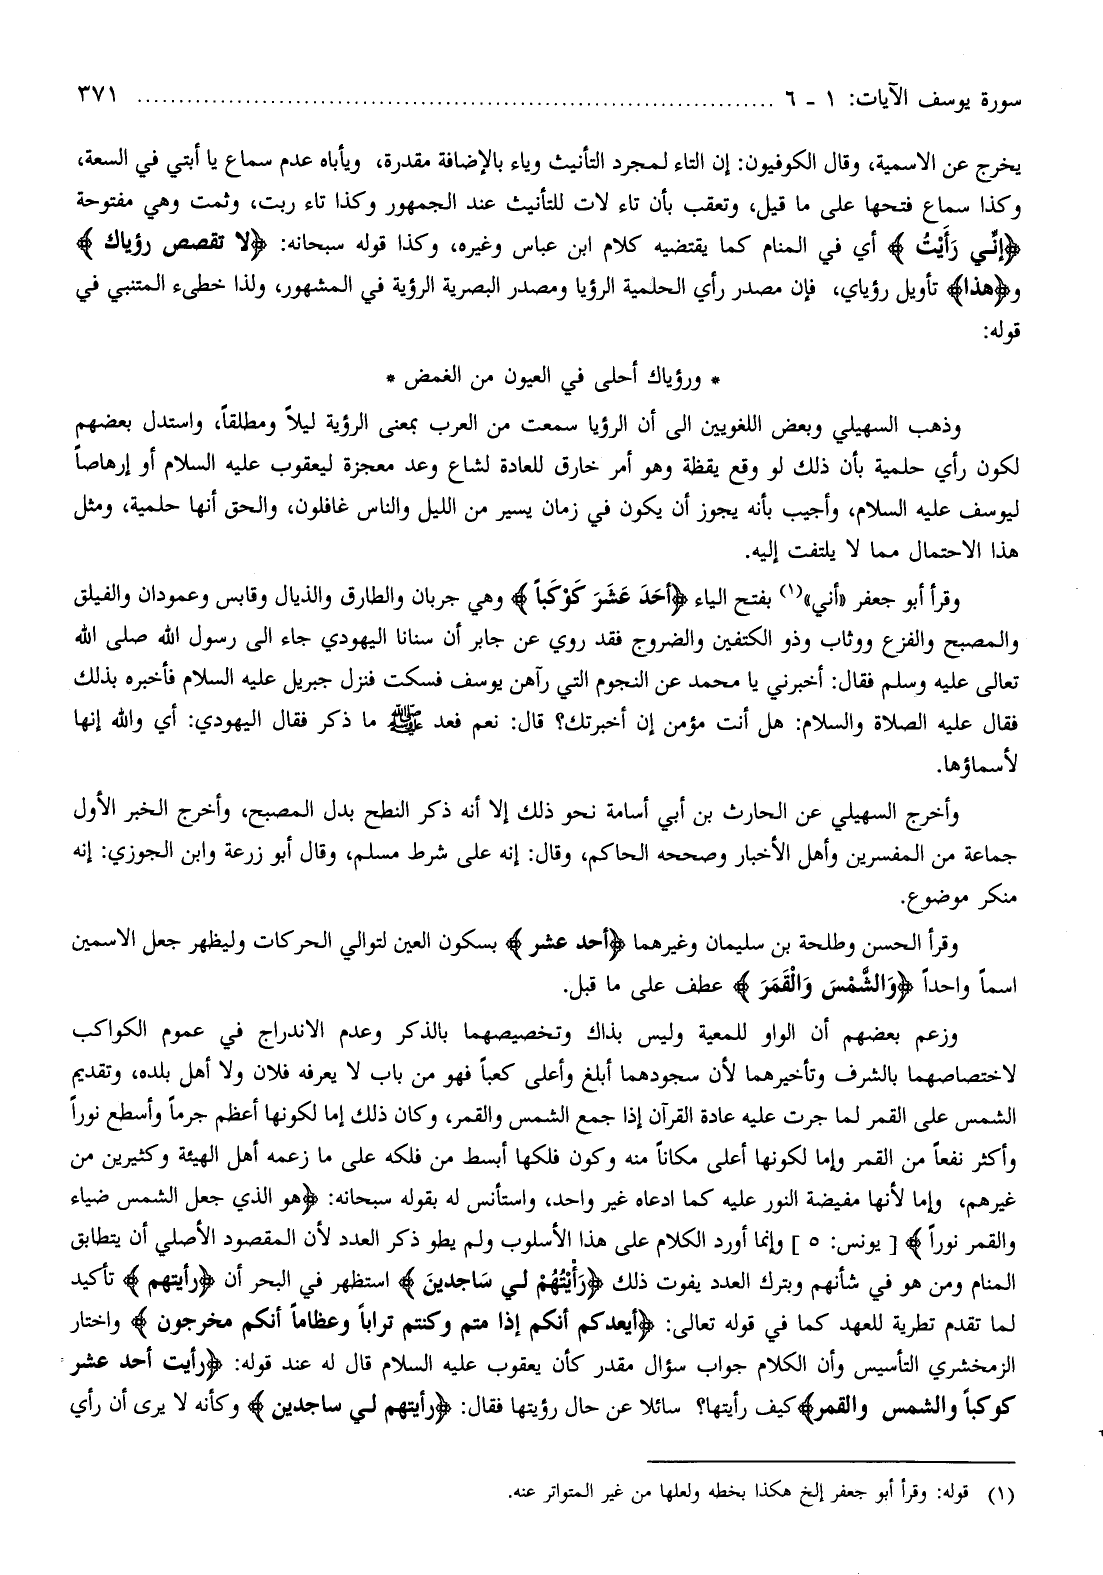 سورة يوسف الآيات: ١ - ٦ ................................................................................ ٣٧١
يخرج عن الاسمية، وقال الكوفيون: إن التاء لمجرد التأنيث وياء بالإضافة مقدرة، ويأباه عدم سماع يا أبتي في السعة،
وكذا سماع فتحها على ما قيل، وتعقب بأن تاء لات للتأنيث عند الجمهور وكذا تاء ربت، وثمت وهي مفتوحة
﴿إِنِّي رَأَيْتُ﴾ أي في المنام كما يقتضيه كلام ابن عباس وغيره، وكذا قوله سبحانه: ﴿لا تقصص رؤياك﴾
و﴿هذا﴾ تأويل رؤياي، فإن مصدر رأي الحلمية الرؤيا ومصدر البصرية الرؤية في المشهور، ولذا خطىء المتنبي في
قوله:
* ورؤياك أحلى في العيون من الغمض *
وذهب السهيلي وبعض اللغويين الى أن الرؤيا سمعت من العرب بمعنى الرؤية ليلاً ومطلقاً، واستدل بعضهم
لكون رأي حلمية بأن ذلك لو وقع يقظة وهو أمر خارق للعادة لشاع وعد معجزة ليعقوب عليه السلام أو إرهاصاً
ليوسف عليه السلام، وأجيب بأنه يجوز أن يكون في زمان يسير من الليل والناس غافلون، والحق أنها حلمية، ومثل
هذا الاحتمال مما لا يلتفت إليه.
وقرأ أبو جعفر «أني»(١) بفتح الياء ﴿أَحَدَ عَشَرَ كَوْكَباً﴾ وهي جربان والطارق والذيال وقابس وعمودان والفيلق
والمصبح والفزع ووثاب وذو الكتفين والضروج فقد روي عن جابر أن سنانا اليهودي جاء الى رسول الله صلى الله
تعالى عليه وسلم فقال: أخبرني يا محمد عن النجوم التي رآهن يوسف فسكت فنزل جبريل عليه السلام فأخبره بذلك
فقال عليه الصلاة والسلام: هل أنت مؤمن إن أخبرتك؟ قال: نعم فعد ﷺ ما ذكر فقال اليهودي: أي والله إنها
لأسماؤها.
وأخرج السهيلي عن الحارث بن أبي أسامة نحو ذلك إلا أنه ذكر النطح بدل المصبح، وأخرج الخبر الأول
جماعة من المفسرين وأهل الأخبار وصححه الحاكم، وقال: إنه على شرط مسلم، وقال أبو زرعة وابن الجوزي: إنه
منكر موضوع.
وقرأ الحسن وطلحة بن سليمان وغيرهما ﴿أحد عشر﴾ بسكون العين لتوالي الحركات وليظهر جعل الاسمين
اسماً واحداً ﴿وَالشَّمْسَ وَالْقَمَرَ﴾ عطف على ما قبل.
وزعم بعضهم أن الواو للمعية وليس بذاك وتخصيصهما بالذكر وعدم الاندراج في عموم الكواكب
لاختصاصهما بالشرف وتأخيرهما لأن سجودهما أبلغ وأعلى كعباً فهو من باب لا يعرفه فلان ولا أهل بلده، وتقديم
الشمس على القمر لما جرت عليه عادة القرآن إذا جمع الشمس والقمر، وكان ذلك إما لكونها أعظم جرماً وأسطع نوراً
وأكثر نفعاً من القمر وإما لكونها أعلى مكاناً منه وكون فلكها أبسط من فلكه على ما زعمه أهل الهيئة وكثيرين من
غيرهم، وإما لأنها مفيضة النور عليه كما ادعاه غير واحد، واستأنس له بقوله سبحانه: ﴿هو الذي جعل الشمس ضياء
والقمر نوراً﴾ [ يونس: ٥ ] وإنما أورد الكلام على هذا الأسلوب ولم يطو ذكر العدد لأن المقصود الأصلي أن يتطابق
المنام ومن هو في شأنهم وبترك العدد يفوت ذلك ﴿رَأَيْتُهُمْ لي سَاجِدينَ﴾ استظهر في البحر أن ﴿رأيتهم﴾ تأكيد
لما تقدم تطرية للعهد كما في قوله تعالى: ﴿أيعدكم أنكم إذا متم وكنتم تراباً وعظاماً أنكم مخرجون﴾ واختار
الزمخشري التأسيس وأن الكلام جواب سؤال مقدر كأن يعقوب عليه السلام قال له عند قوله: ﴿رأيت أحد عشر
كوكباً والشمس والقمر﴾ كيف رأيتها؟ سائلا عن حال رؤيتها فقال: ﴿رأيتهم لي ساجدين﴾ وكأنه لا يرى أن رأي
(١) قوله: وقرأ أبو جعفر إلخ هكذا بخطه ولعلها من غير المتواتر عنه.